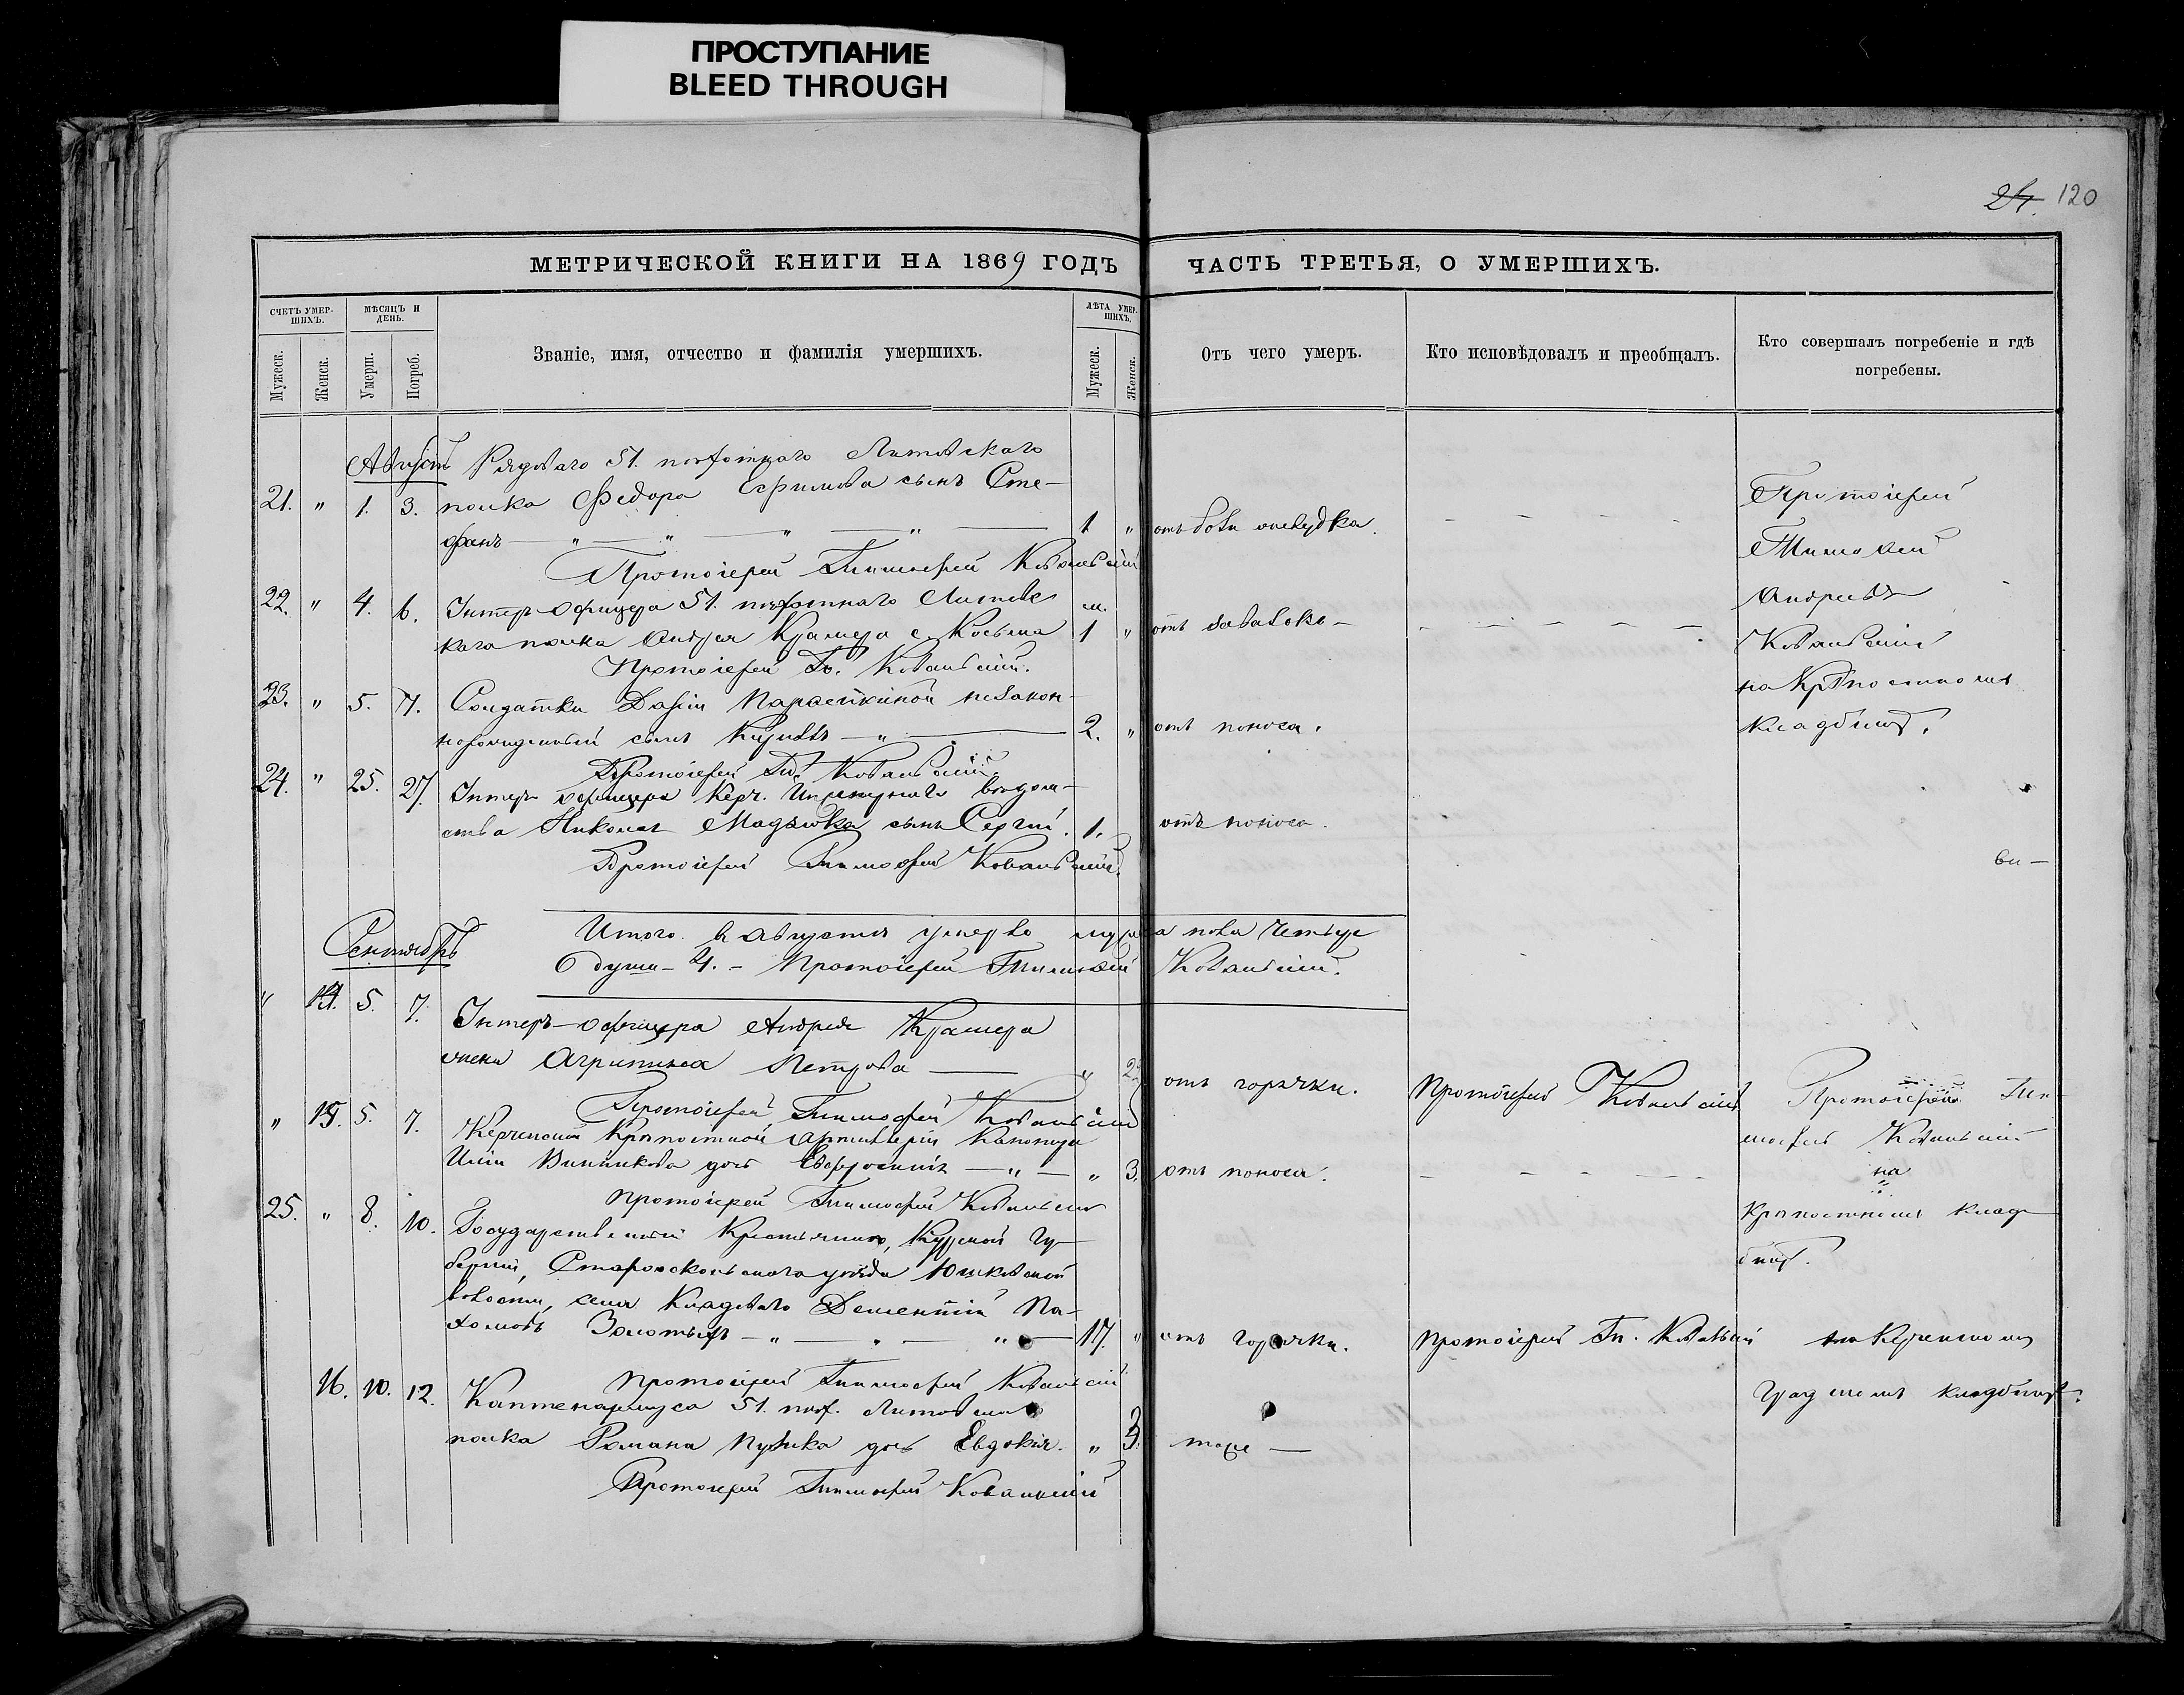 ПРОСТУПАНИЕ
BLEED THROUGH
24. 120
МЕТРИЧЕСКОЙ КНИГИ НА 1869 ГОДЪ ЧАСТЬ ТРЕТЬЯ, О УМЕРШИХЪ.
СЧЕТЪ УМЕР-
ШИХЪ.
МѢСЯЦЪ И
ДЕНЬ.
ЛѢТА УМЕР-
ШИХЪ.
Мужеск.
Женск.
Умерш.
Погреб.
Званіе, имя, отчество и фамилія умершихъ.
Мужеск.
Женск.
Отъ чего умеръ.
Кто исповѣдовалъ и преобщалъ.
Кто совершалъ погребеніе и гдѣ
погребены.
Августъ Рядоваго 51. пѣхотнаго Литовскаго
21. " 1. 3. полка Федора Ефимова сынъ Сте-
фанъ — " — " — " — " — 1 " отъ боли желудка.
Протоіерей Тимофей Ковальскій
22. " 4. 6. Унтеръ-офицера 51. пѣхотнаго Литовс
каго полка Андрея Крамера с. Косьма м. 1 "
Протоіерей Ти. Ковальскій.
23. " 5. 7. Солдатки Даріи незакон-
норожденный сынъ — " — 2. " отъ поноса.
Протоіерей Ти. Ковальскій.
24. " 25. 27. Унтеръ офицера Керч. Инженернаго вѣдом-
ства Николая сынъ Сергій. 1. отъ поноса.
Протоіерей Тимофей Ковальскій.
Протоіерей
Тимофей
Андреевъ
Ковальскій
на Крѣпостномъ
кладбищѣ.
Итого въ августѣ умерло мужеска пола четыре
души - 4. - Протоіерей Тимофей Ковальскій.
Сентябрь
" 14. 5. 7. Унтеръ-офицера Андрея Крамера
жена Агрипина Петрова — " отъ горячки. Протоіерей Ковальскій
Протоіерей Тимофей Ковальскій
" 15. 5. 7. Керченской Крѣпостной артиллеріи Канонира
Винникова дочь Евфросинія — " — " 3. отъ поноса.
Протоіерей Тимофей Ковальскій
Протоіерей Ти-
мофей Ковальскій
на
Крѣпостномъ клад-
бищѣ.
25. " 8. 10. Государственный Крестьянинъ, Курской Гу-
берніи, Старооскольскаго уѣзда
волости, села Дементій Па-
хомовъ — " — " — " — 17. " отъ горячки. Протоіерей Ти. Ковальскій на Керченскомъ
Протоіерей Тимофей Ковальскій
градскомъ кладбищѣ.
16. 10. 12. Каптенармуса 51. пѣх. Литовскаго
полка Романа дочь Евдокія. " 3. тоже —
Протоіерей Тимофей Ковальскій